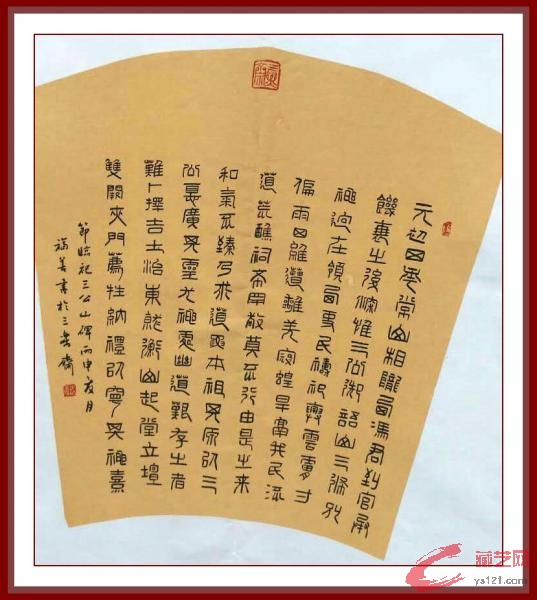 元初四年常山相隴西馮君到官承
饑衰之後深惟三公御語山三條別
神迥在領西吏民禱祀興雲膚寸
偏雨四維遭離羌寇蝗旱鬲我民流
道荒醮祠希罕敬奠不行由是之來
和氣不臻乃求道要本祖其原以三
公德廣其靈尤神處幽道艱存之者
難卜擇吉土治東就衡山起堂立壇
雙闕夾門薦牲納禮以寧其神熹
節臨祀三公山碑丙申夏月
書於三齋
藏艺网
ys121.com